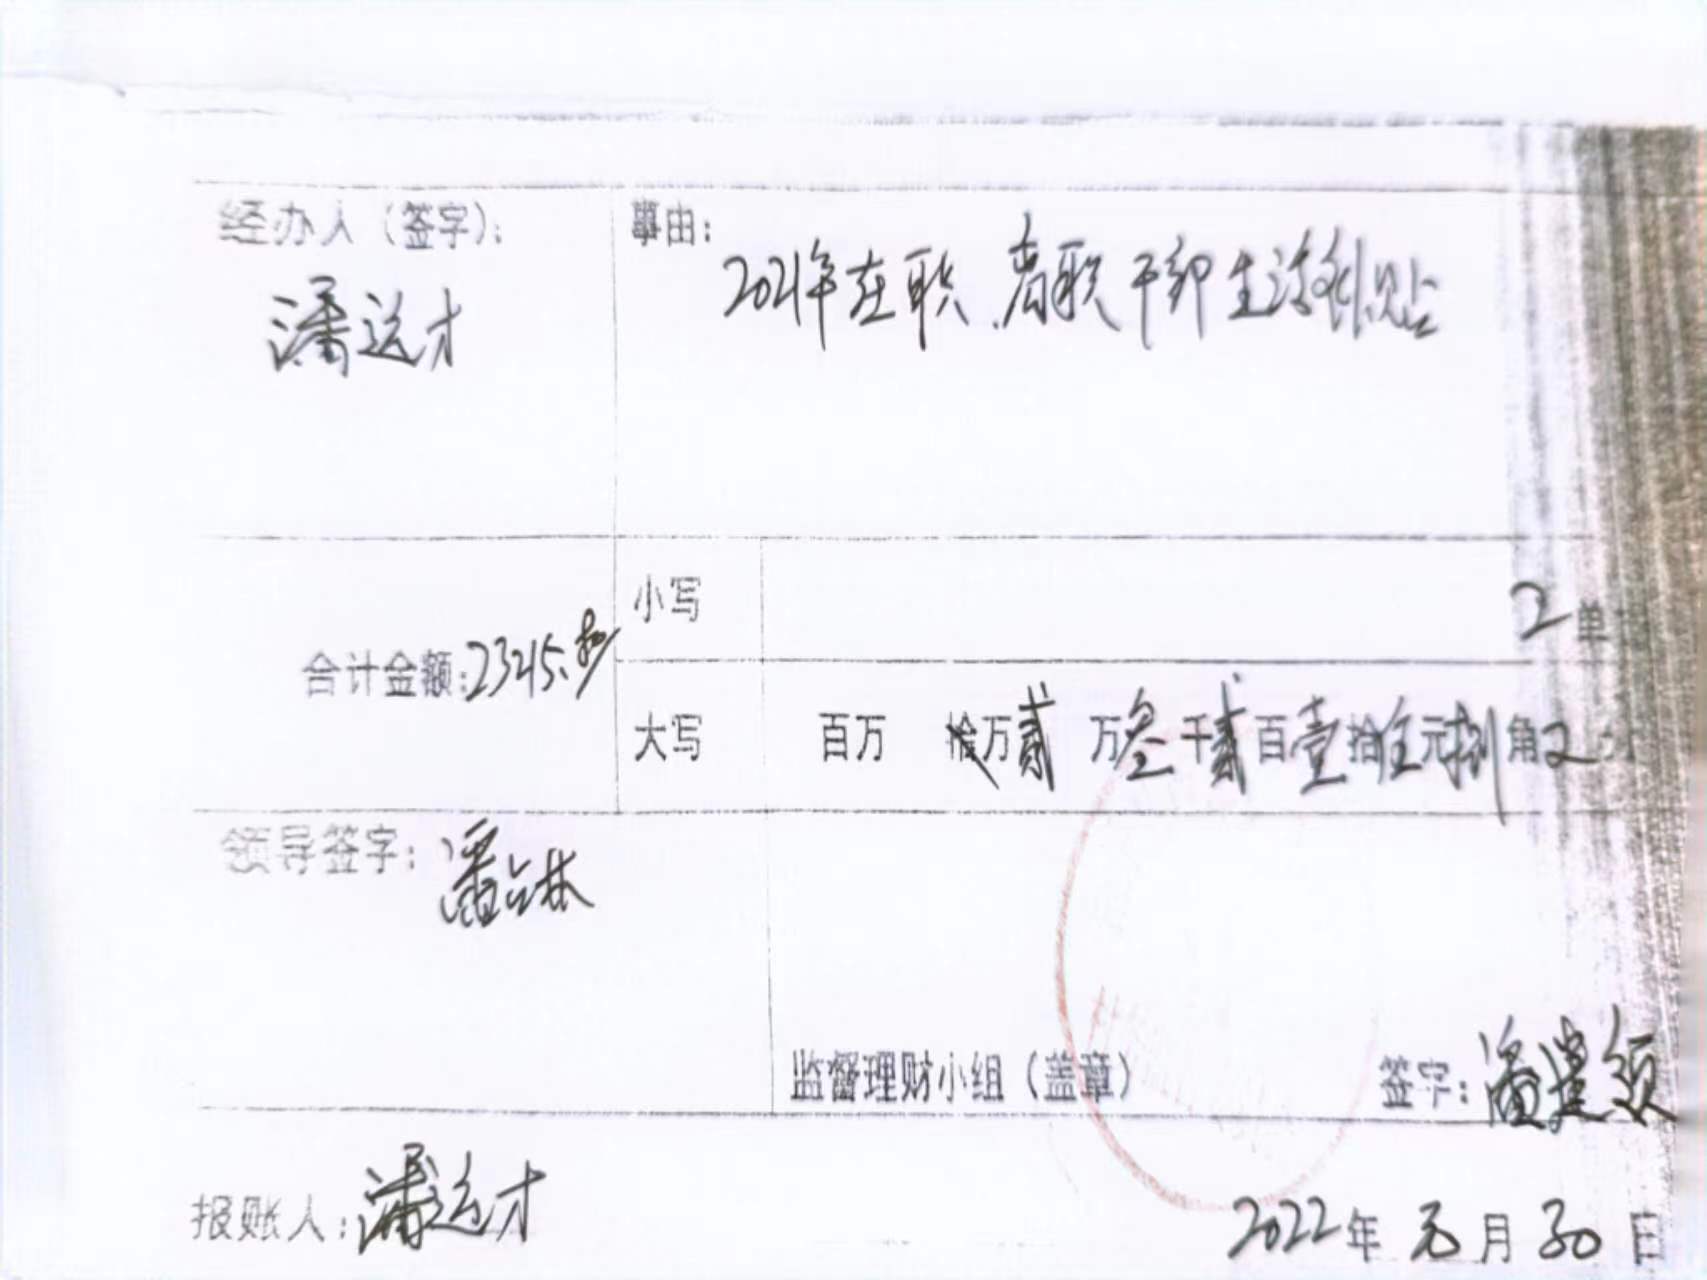 经办人（签字）：
潘运才
事由：
2021年在职、离职干部生活补贴
合计金额：23215.80
小写
2 单
大写 百万 拾万贰 万叁千贰百壹拾伍元捌角
领导签字：潘
监督理财小组（盖章） 签字：潘建颂
报账人：潘运才
2022年元月30日